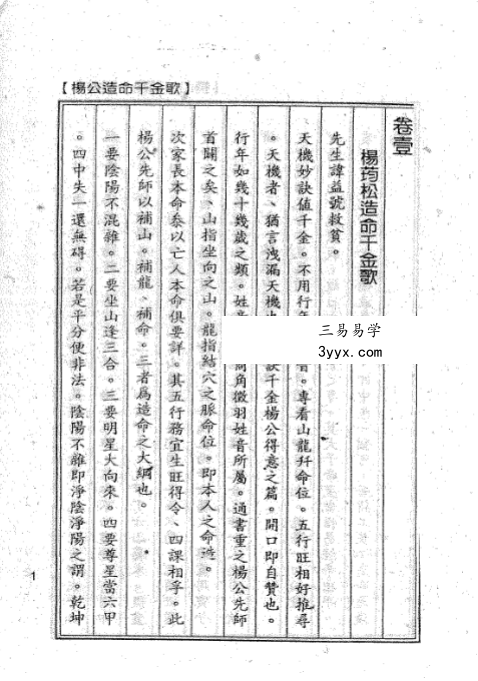 【楊公造命千金歌】
卷壹
楊筠松造命千金歌
先生諱益號救貧。
天機妙訣值千金。不用行年 音。專看山龍幷命位。五行旺相好推尋
。天機者、猶言洩漏天機也 訣千金楊公得意之篇。開口即自贊也。
行年如幾十幾歲之類。姓音 商角徵羽姓音所屬。通書重之楊公先師
首闢之矣、山指坐向之山。龍指結穴之脈命位。即本人之命造。
次家長本命叅以亡人本命俱要詳。其五行務宜生旺得令、四課相孚。此
楊公先師以補山。補龍、補命。三者爲造命之大綱也。
一要陰陽不混雜。二要坐山逢三合。三要明星大向來。四要尊星當六甲
。四中失一還無碍。若是平分便非法。陰陽不離即淨陰淨陽之謂。乾坤
三易易学
3yyx.com
1